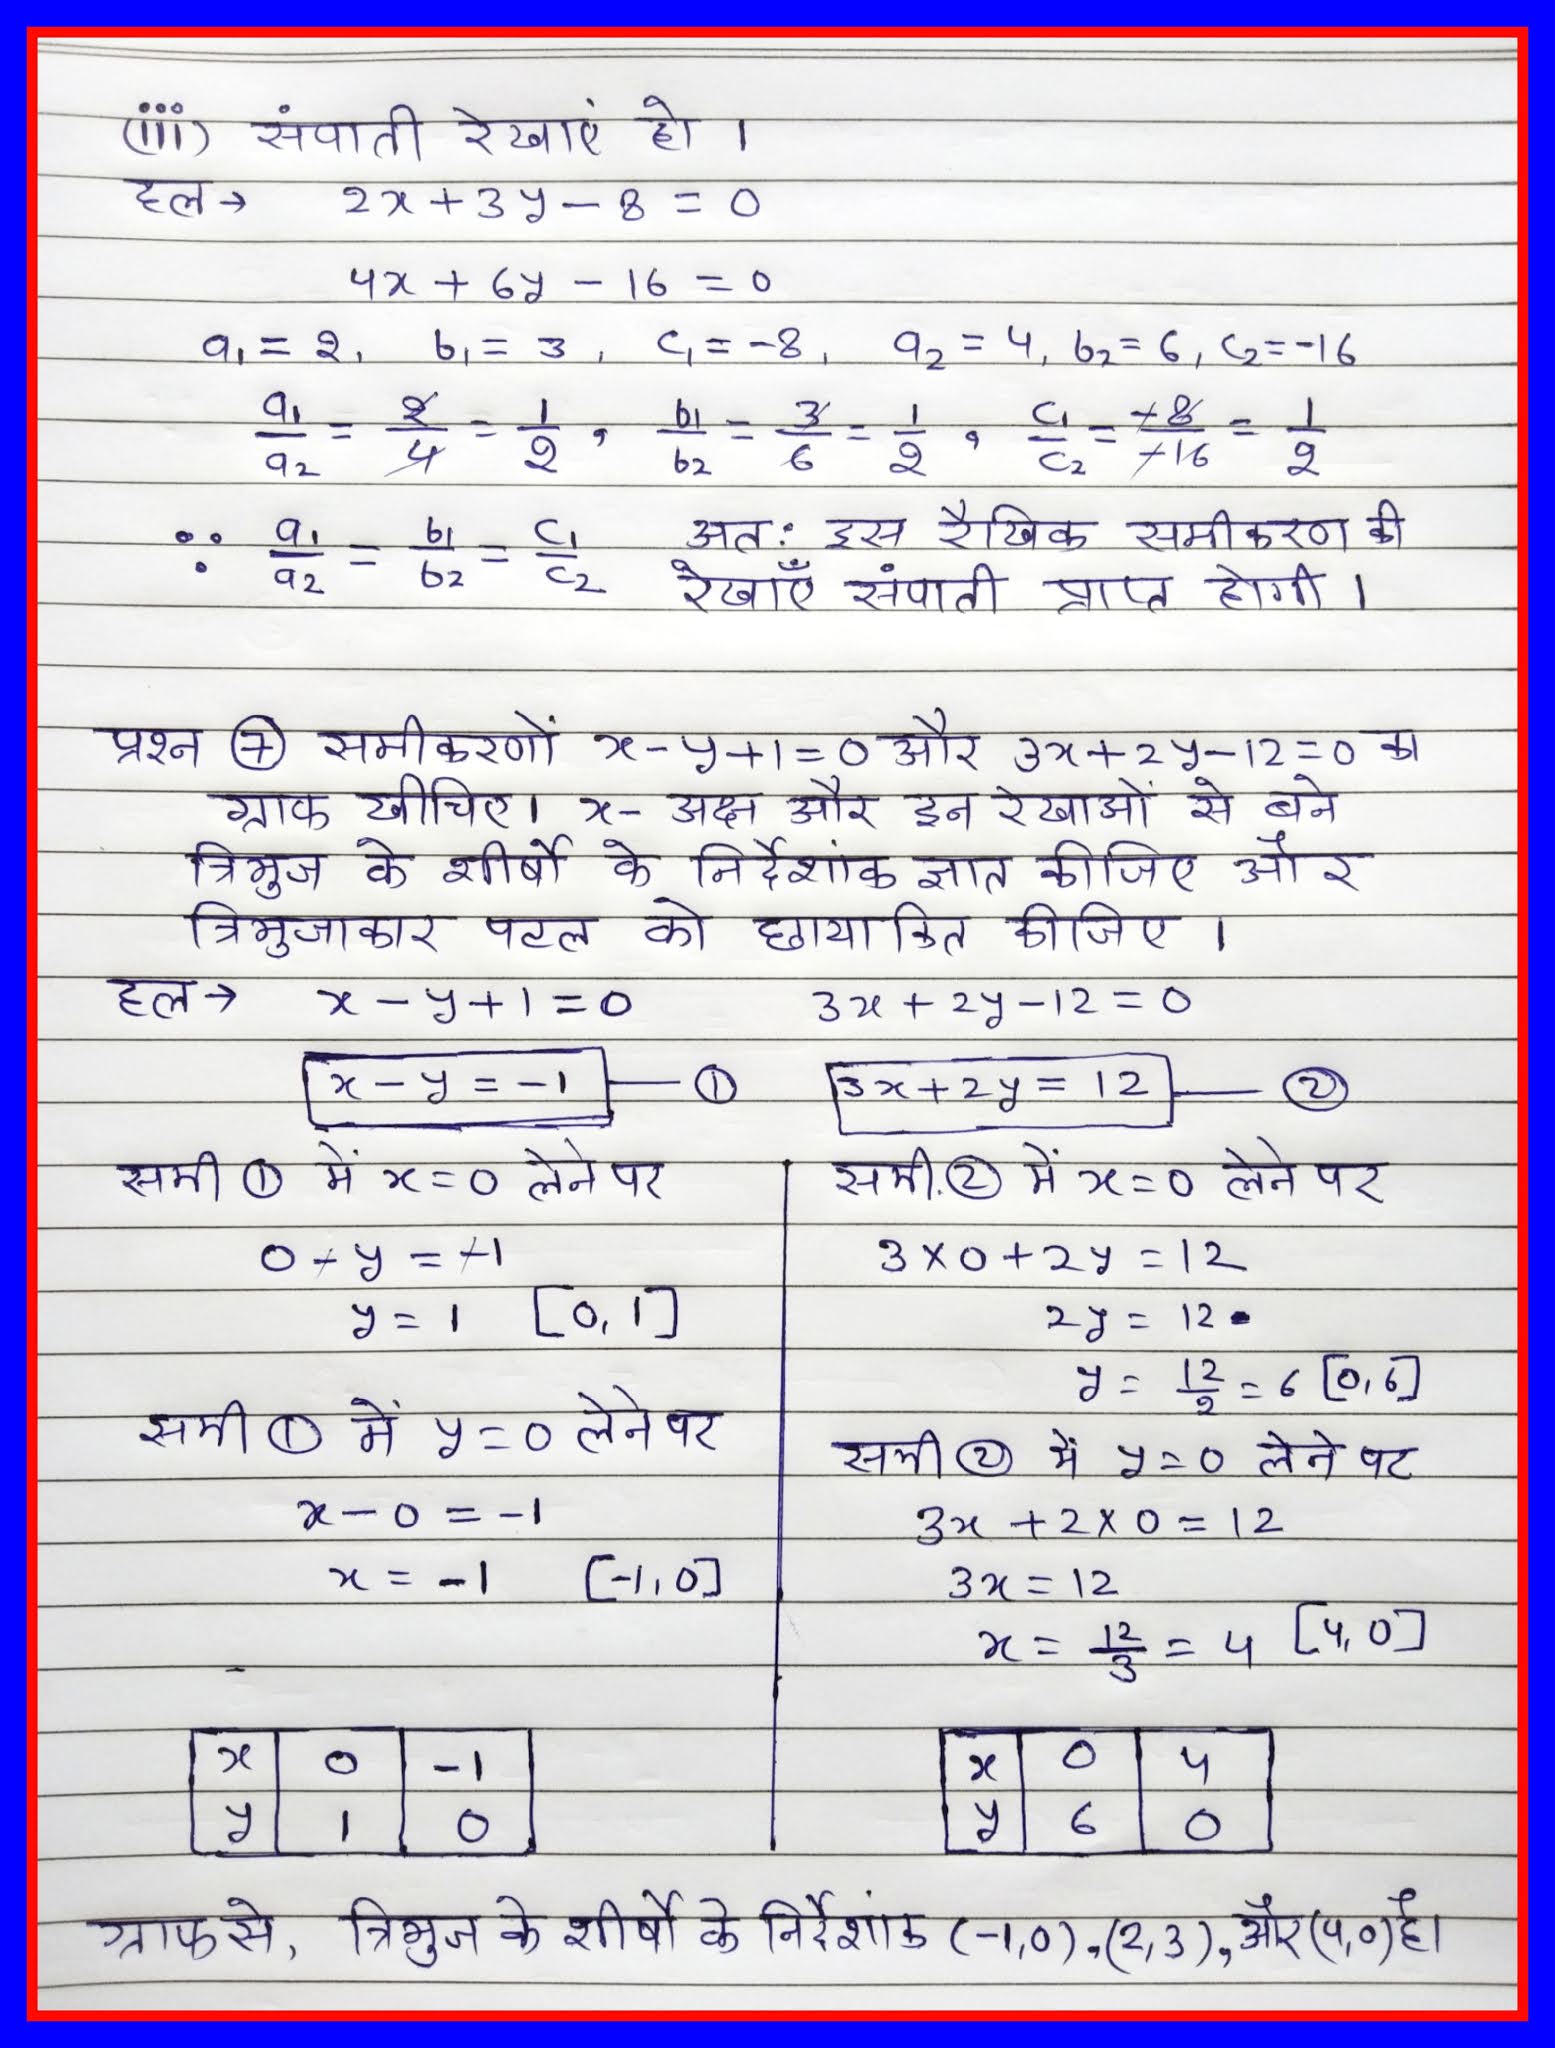 (iii) संपाती रेखाएं हो ।
हल→ 2x+3y-8=0
4x+6y-16=0
a₁=2, b₁=3, c₁=-8, a₂=4, b₂=6, c₂=-16
a₁/a₂ = 2/4 = 1/2, b₁/b₂ = 3/6 = 1/2, c₁/c₂ = -8/-16 = 1/2
∵ a₁/a₂ = b₁/b₂ = c₁/c₂ अत: इस रैखिक समीकरण की
रेखाएँ संपाती प्राप्त होगी ।
प्रश्न ⑦ समीकरणों x-y+1=0 और 3x+2y-12=0 का
ग्राफ खीचिए। x- अक्ष और इन रेखाओं से बने
त्रिभुज के शीर्षो के निर्देशांक ज्ञात कीजिए और
त्रिभुजाकार पटल को छायाकित कीजिए ।
हल→ x-y+1=0 3x+2y-12=0
x-y=-1 — ① 3x+2y=12 — ②
समी ① में x=0 लेने पर
0-y=-1
y=1 [0,1]
समी ① में y=0 लेने पर
x-0=-1
x=-1 [-1,0]
x 0 -1
y 1 0
समी.② में x=0 लेने पर
3×0+2y=12
2y=12
y=12/2=6 [0,6]
समी ② में y=0 लेने पर
3x+2×0=12
3x=12
x=12/3=4 [4,0]
x 0 4
y 6 0
ग्राफ से, त्रिभुज के शीर्षो के निर्देशांक (-1,0),(2,3), और (4,0) है।